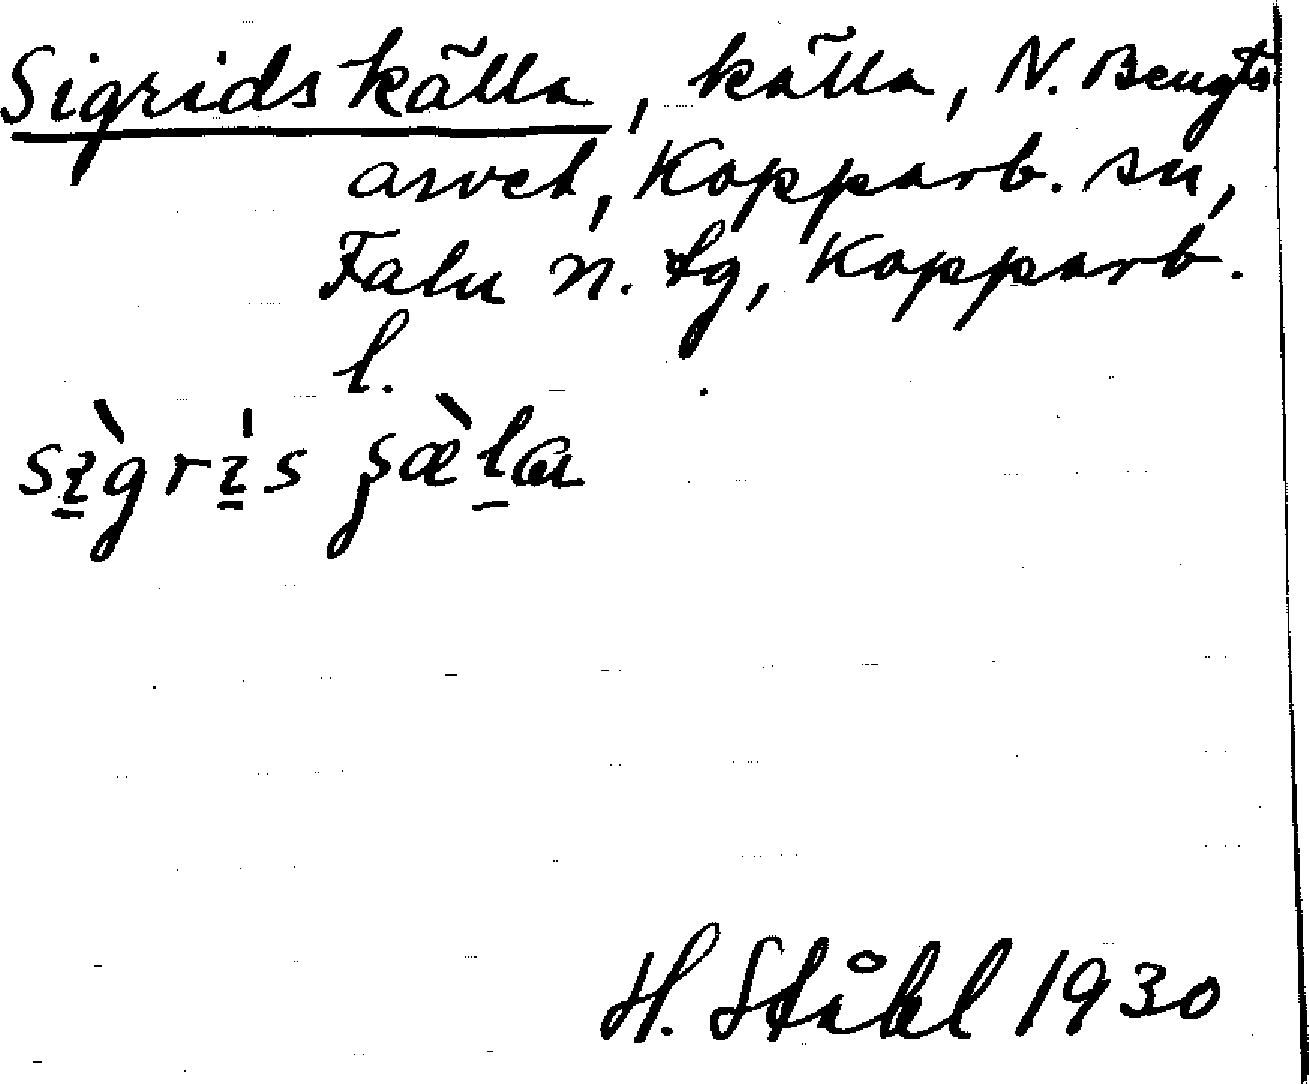 Sigridskälla, källa, N. Bengts
arvet, Kopparb. sn,
Falu n. tg, Kopparb.
l.
sɪ̠̀grɪ̠̍s ʂæ̀l̠a
H. Ståhl 1930